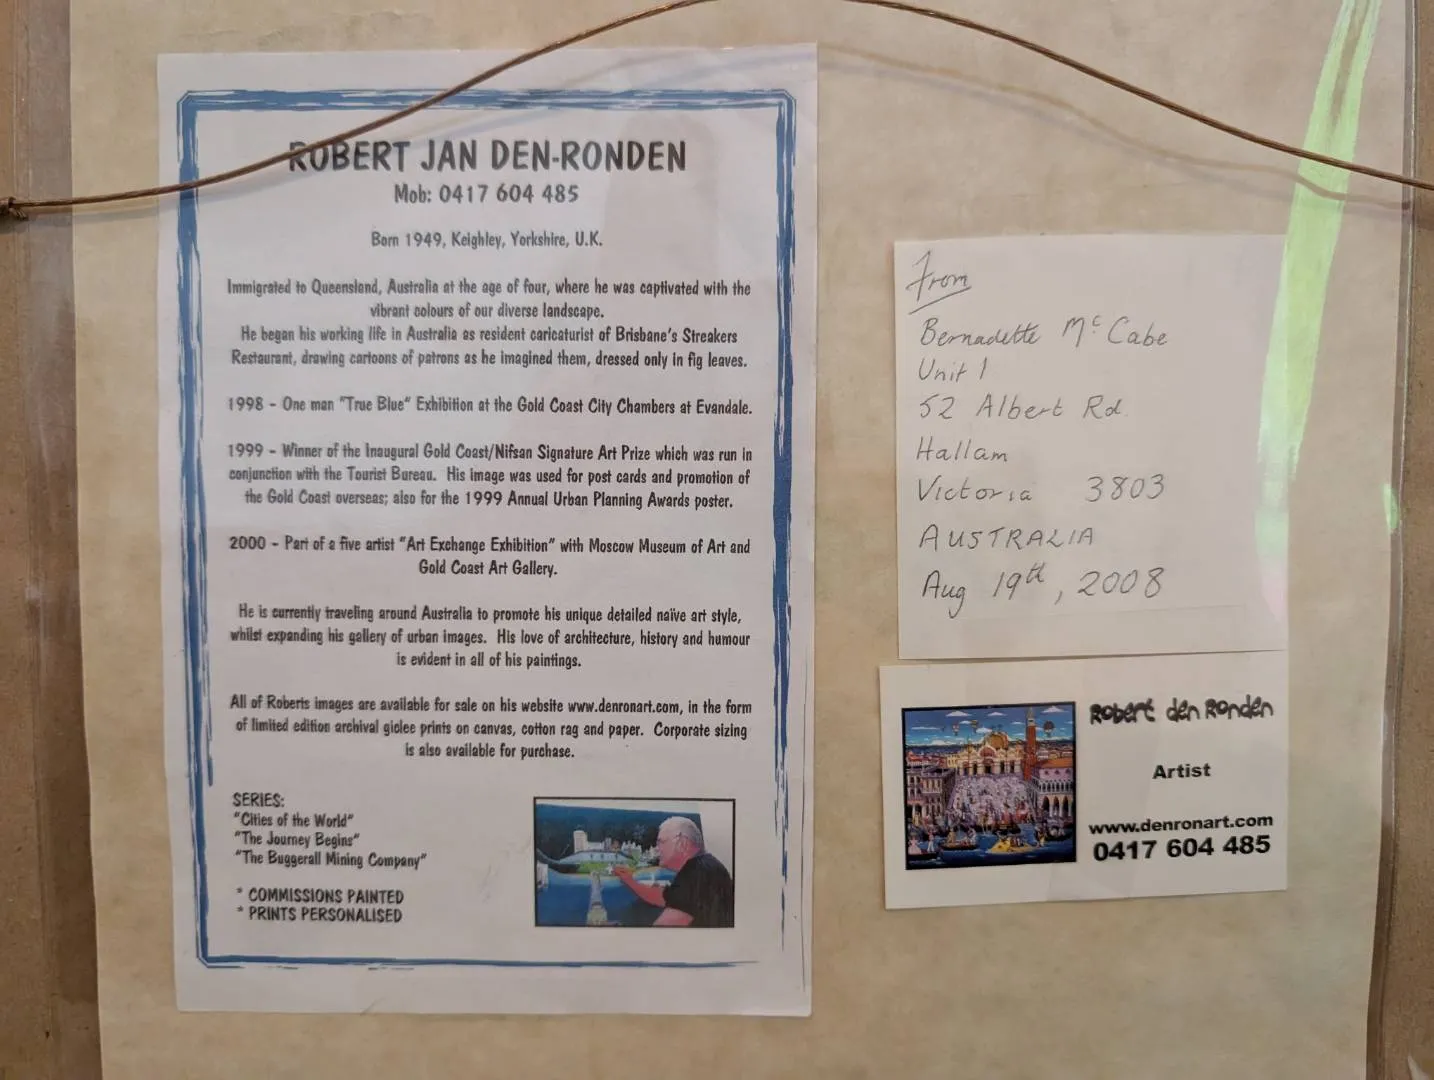 ROBERT JAN DEN-RONDEN
Mob: 0417 604 485
Born 1949, Keighley, Yorkshire, U.K.
Immigrated to Queensland, Australia at the age of four, where he was captivated with the
vibrant colours of our diverse landscape.
He began his working life in Australia as resident caricaturist of Brisbane's Streakers
Restaurant, drawing cartoons of patrons as he imagined them, dressed only in fig leaves.
1998 - One man "True Blue" Exhibition at the Gold Coast City Chambers at Evandale.
1999 - Winner of the Inaugural Gold Coast/Nifsan Signature Art Prize which was run in
conjunction with the Tourist Bureau. His image was used for post cards and promotion of
the Gold Coast overseas; also for the 1999 Annual Urban Planning Awards poster.
2000 - Part of a five artist "Art Exchange Exhibition" with Moscow Museum of Art and
Gold Coast Art Gallery.
He is currently traveling around Australia to promote his unique detailed naïve art style,
whilst expanding his gallery of urban images. His love of architecture, history and humour
is evident in all of his paintings.
All of Roberts images are available for sale on his website www.denronart.com, in the form
of limited edition archival giclee prints on canvas, cotton rag and paper. Corporate sizing
is also available for purchase.
SERIES:
"Cities of the World"
"The Journey Begins"
"The Buggerall Mining Company"
* COMMISSIONS PAINTED
* PRINTS PERSONALISED
From
Bernadette McCabe
Unit 1
52 Albert Rd.
Hallam
Victoria 3803
AUSTRALIA
Aug 19th, 2008
Robert den Ronden
Artist
www.denronart.com
0417 604 485